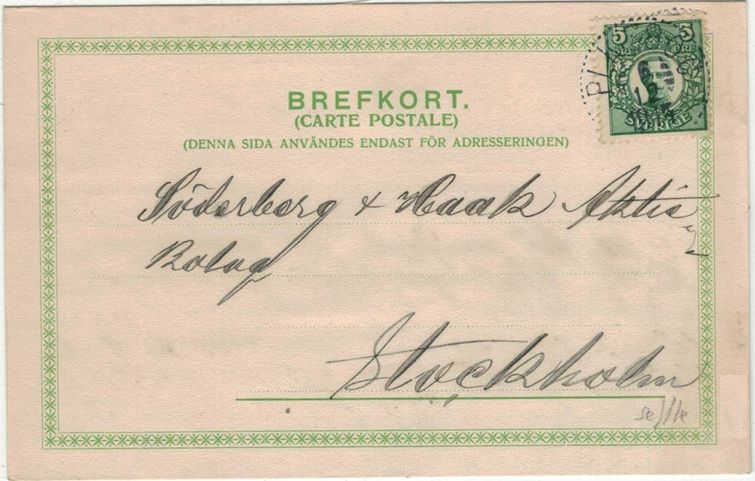 5 5
ÖRE ÖRE
SVERIGE
BREFKORT.
(CARTE POSTALE)
(DENNA SIDA ANVÄNDES ENDAST FÖR ADRESSERINGEN)
Söderberg & Haak Aktie
Bolag
Stockholm